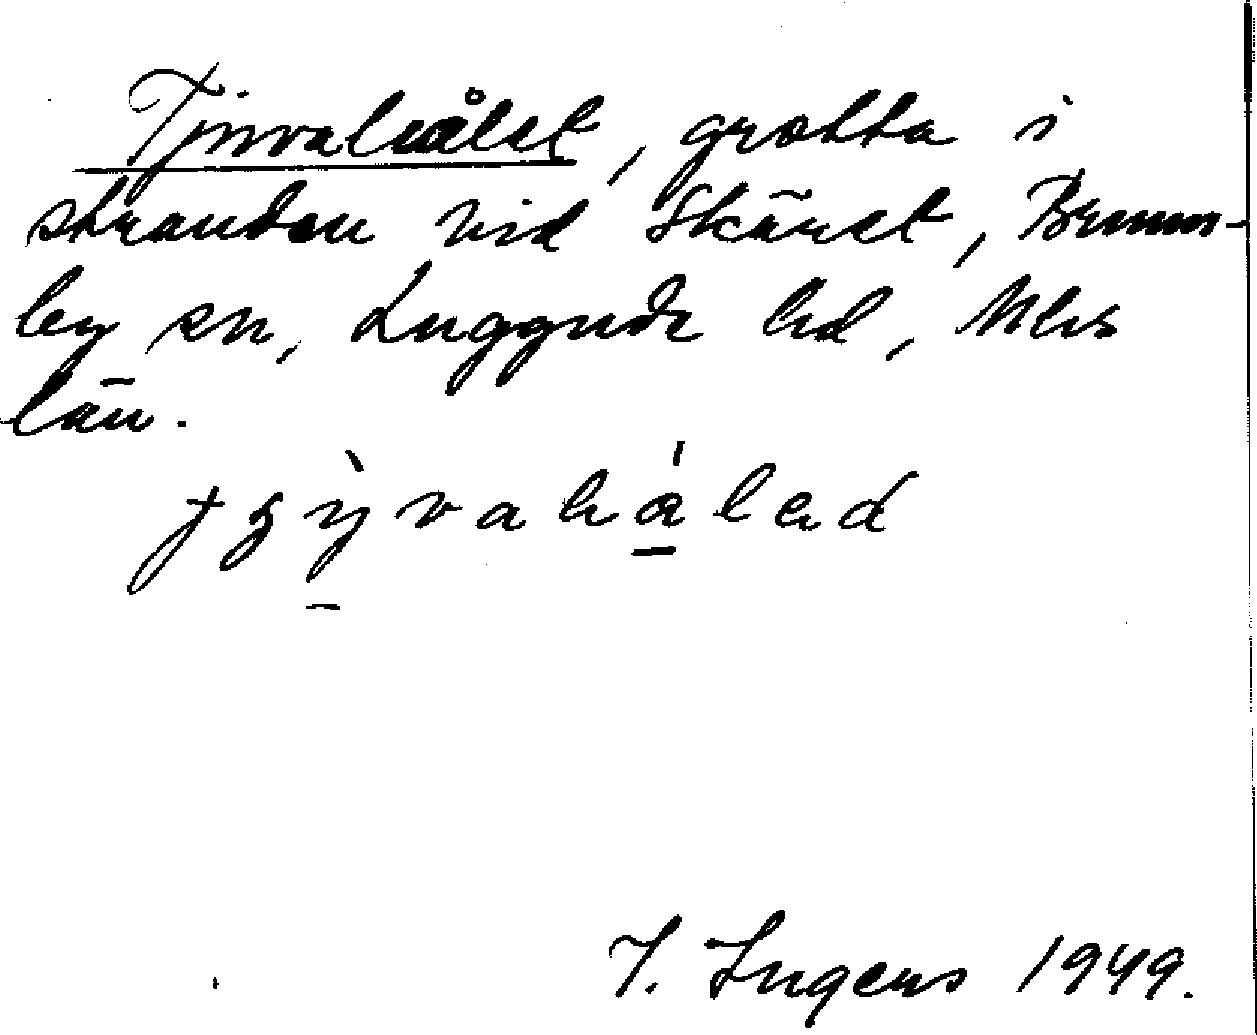 Tjuvahålet, grotta i
stranden vid Skäret, Brunn-
by sn, Luggude hd, Mhs
län.
I. Ingers 1949.